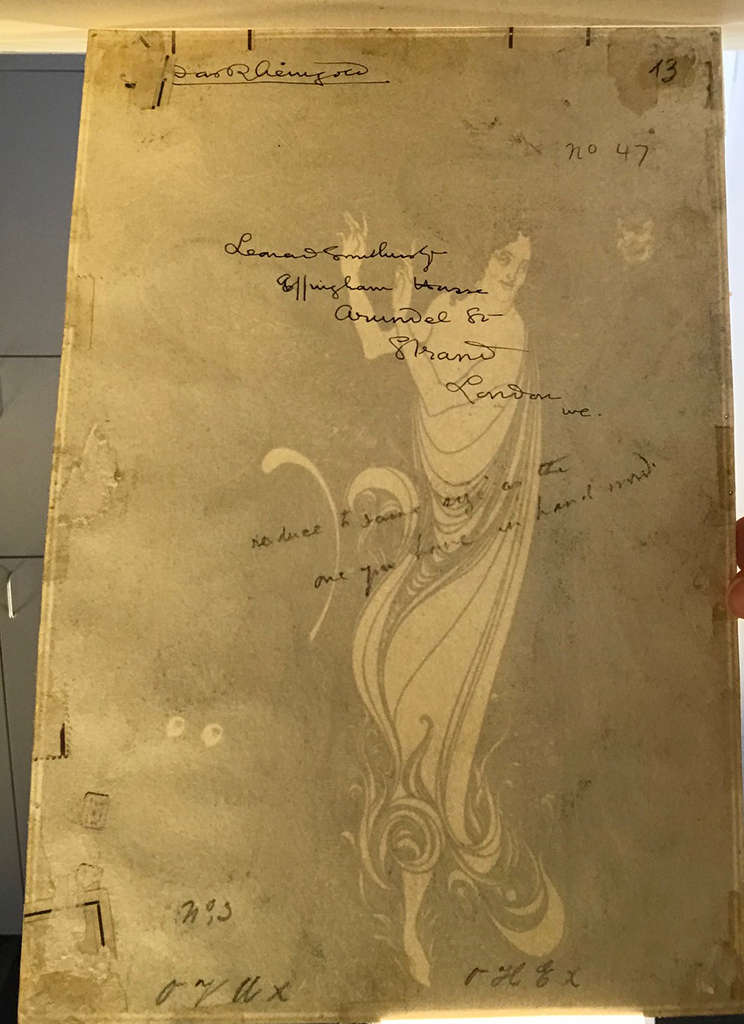 Das Rheingold
13
No 47
Leonard Smithers Esq
Effingham House
Arundel St
Strand
London
W.C.
reduce to same size as the
one you have in hand now.
No. 3